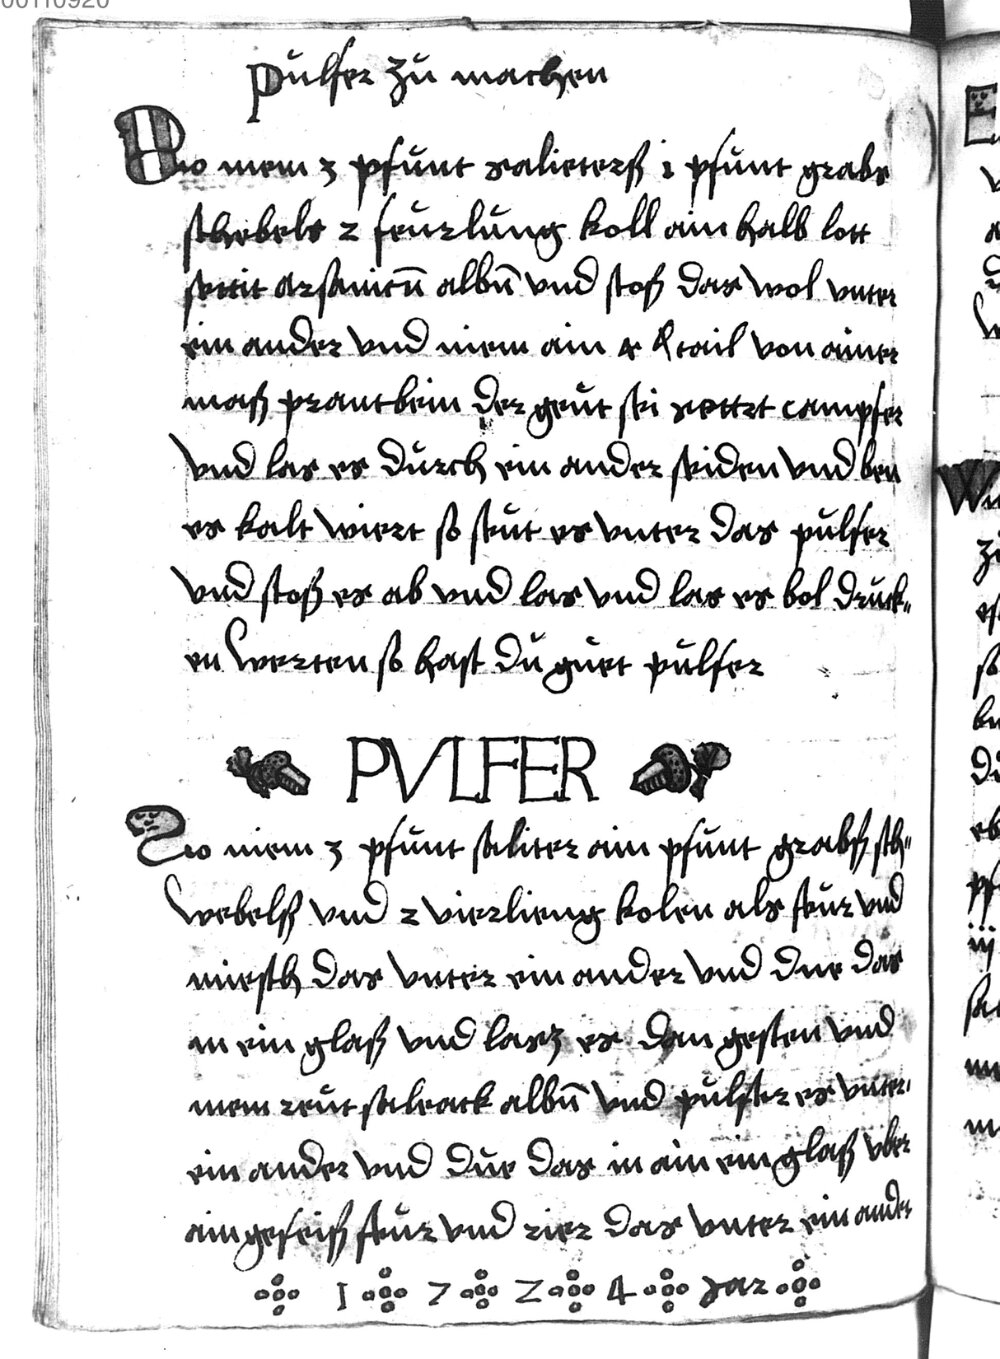 00110920
pulfer zu machen
Do mem 3 pfunt salieterß 1 pfunt grabs
schebels 2 feurlung koll ain halb lott
arsanicū albū vnd stoß das wol vnter
ein ander vnd niem ain 4 tail von ainer
maß prantbein der geut campfer
vnd las es durch ein ander seiden vnd ben
es kalt wiert so steut es vnter das pulfer
vnd stoß es ab vnd las vnd las es bol druck„
en werten so hast du guet pulfer
PVLFER
Do niem 3 pfunt saliter ain pfunt grabß sch„
webelß vnd 2 vierlieng kolen als feur vnd
miesch das vnter ein ander vnd due das
in ein glaß vnd lasz es dan gesten vnd
mem albū vnd pulfter es vnter„
ein ander vnd due das in ain ein glaß vber
ain geheiß feur vnd rier das vnter ein ander
1 7 2 4 jar